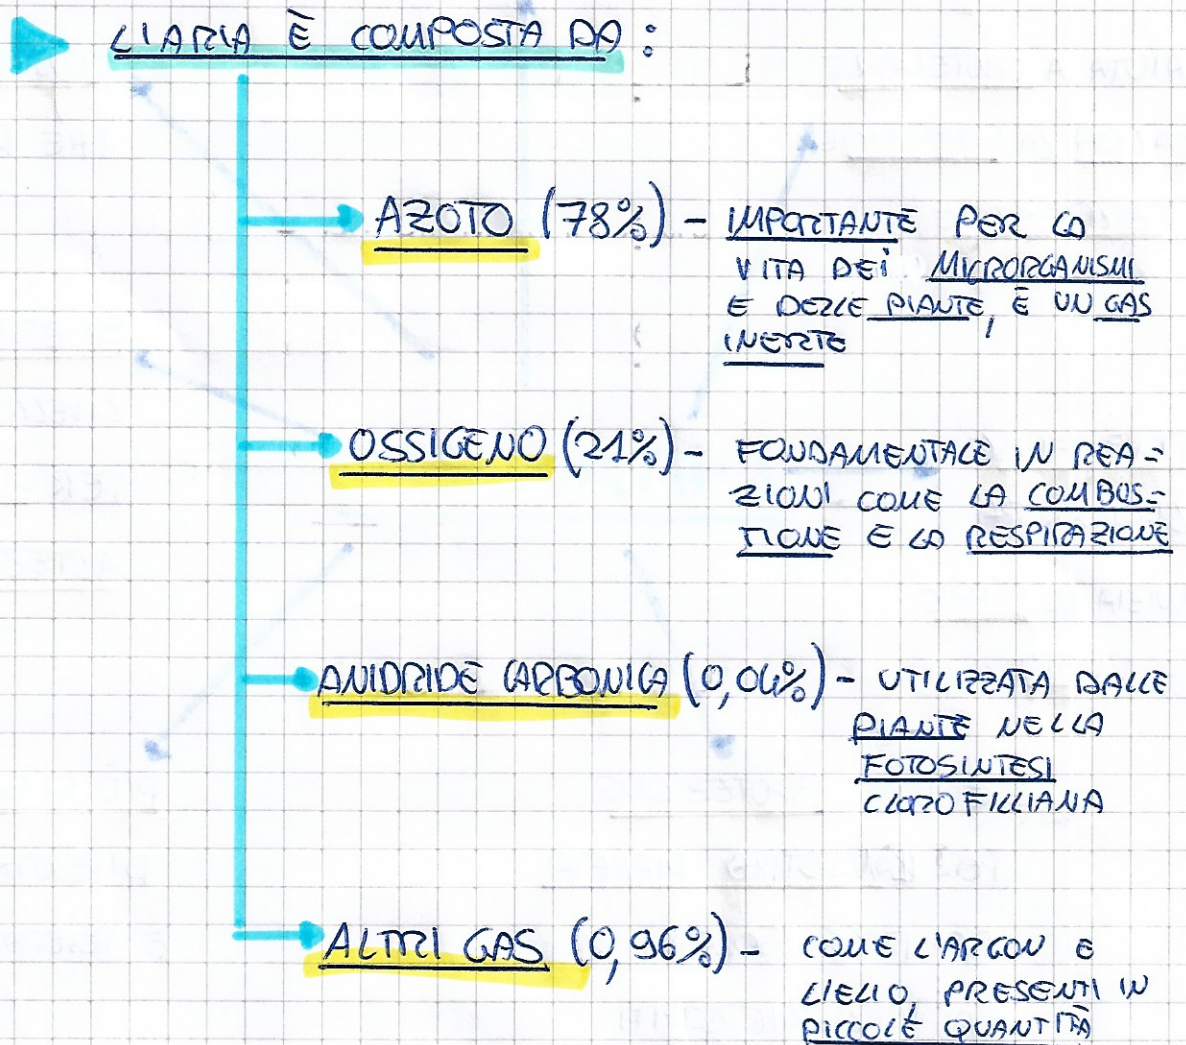 L'ARIA È COMPOSTA DA:
AZOTO (78%) - IMPORTANTE PER LA
VITA DEI MICRORGANISMI
E DELLE PIANTE, È UN GAS
INERTE
OSSIGENO (21%) - FONDAMENTALE IN REA=
ZIONI COME LA COMBUS=
TIONE E LA RESPIRAZIONE
ANIDRIDE CARBONICA (0,04%) - UTILIZZATA DALLE
PIANTE NELLA
FOTOSINTESI
CLOROFILLIANA
ALTRI GAS (0,96%) - COME L'ARGON E
L'ELIO, PRESENTI IN
PICCOLE QUANTITÀ